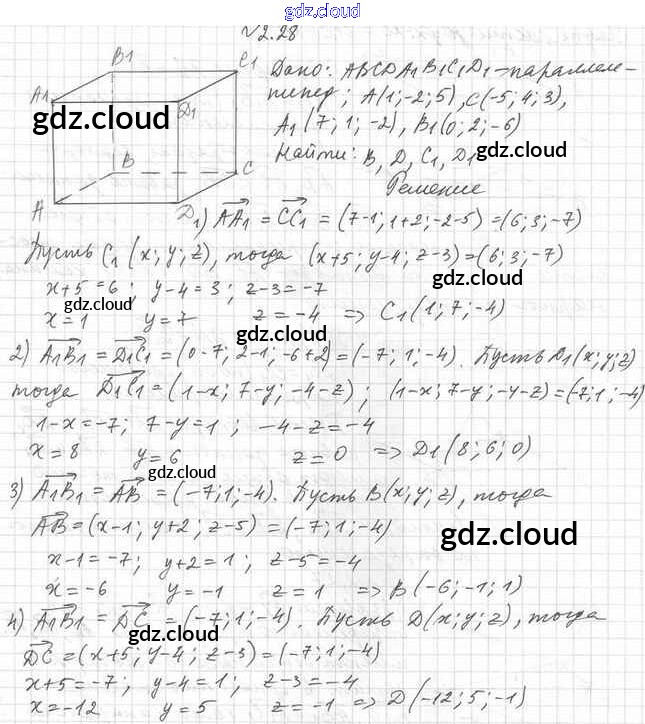 gdz.cloud
№2.28
B1 C1
A1 D1
B C
A D
Дано: ABCDA1B1C1D1-параллеле-
пипед; A(1;-2;5), C(-5;4;3),
A1(7;1;-2), B1(0;2;-6)
Найти: B, D, C1, D1
gdz.cloud
gdz.cloud
Решение
1) AA1 = CC1 = (7-1; 1+2; -2-5) = (6; 3; -7)
Пусть C1 (x; y; z), тогда (x+5; y-4; z-3) = (6; 3; -7)
x+5=6; y-4=3; z-3=-7
gdz.cloud
gdz.cloud
x=1 y=7 z=-4 => C1(1; 7; -4)
2) A1B1 = D1C1 = (0-7; 2-1; -6+2) = (-7; 1; -4). Пусть D1(x; y; z)
тогда D1C1 = (1-x; 7-y; -4-z); (1-x; 7-y; -4-z) = (-7; 1; -4)
1-x=-7; 7-y=1; -4-z=-4
x=8 y=6 z=0 => D1(8; 6; 0)
gdz.cloud
3) A1B1 = AB = (-7; 1; -4). Пусть B(x; y; z), тогда
AB = (x-1; y+2; z-5) = (-7; 1; -4)
gdz.cloud
x-1=-7; y+2=1; z-5=-4
x=-6 y=-1 z=1 => B(-6; -1; 1)
4) A1B1 = DC = (-7; 1; -4). Пусть D(x; y; z), тогда
gdz.cloud
DC = (x+5; y-4; z-3) = (-7; 1; -4)
x+5=-7; y-4=1; z-3=-4
x=-12 y=5 z=-1 => D(-12; 5; -1)
gdz.cloud
gdz.cloud